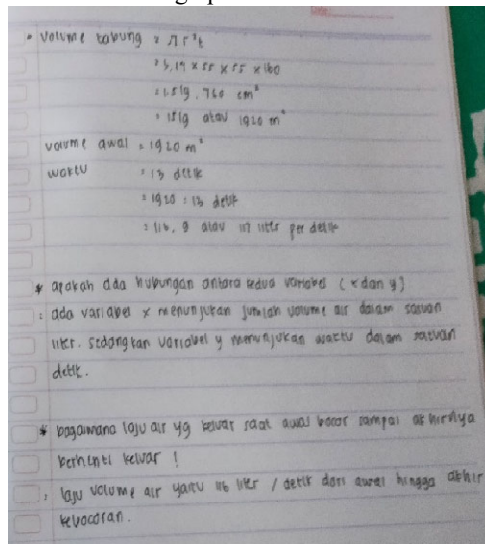 • Volume tabung = π r² t
= 3,14 x 55 x 55 x 160
= 1.519.760 cm³
= 1519 atau 1920 m³
Volume awal = 1920 m³
waktu = 13 detik
= 1920 : 13 detik
= 116,9 atau 117 liter per detik
* apakah ada hubungan antara kedua variabel (x dan y)
: ada variabel x menunjukan jumlah volume air dalam satuan
liter. sedangkan variabel y menunjukan waktu dalam satuan
detik.
* bagaimana laju air yg keluar saat awal bocor sampai akhirnya
berhenti keluar !
: laju volume air yaitu 116 liter / detik dari awal hingga akhir
kebocoran.